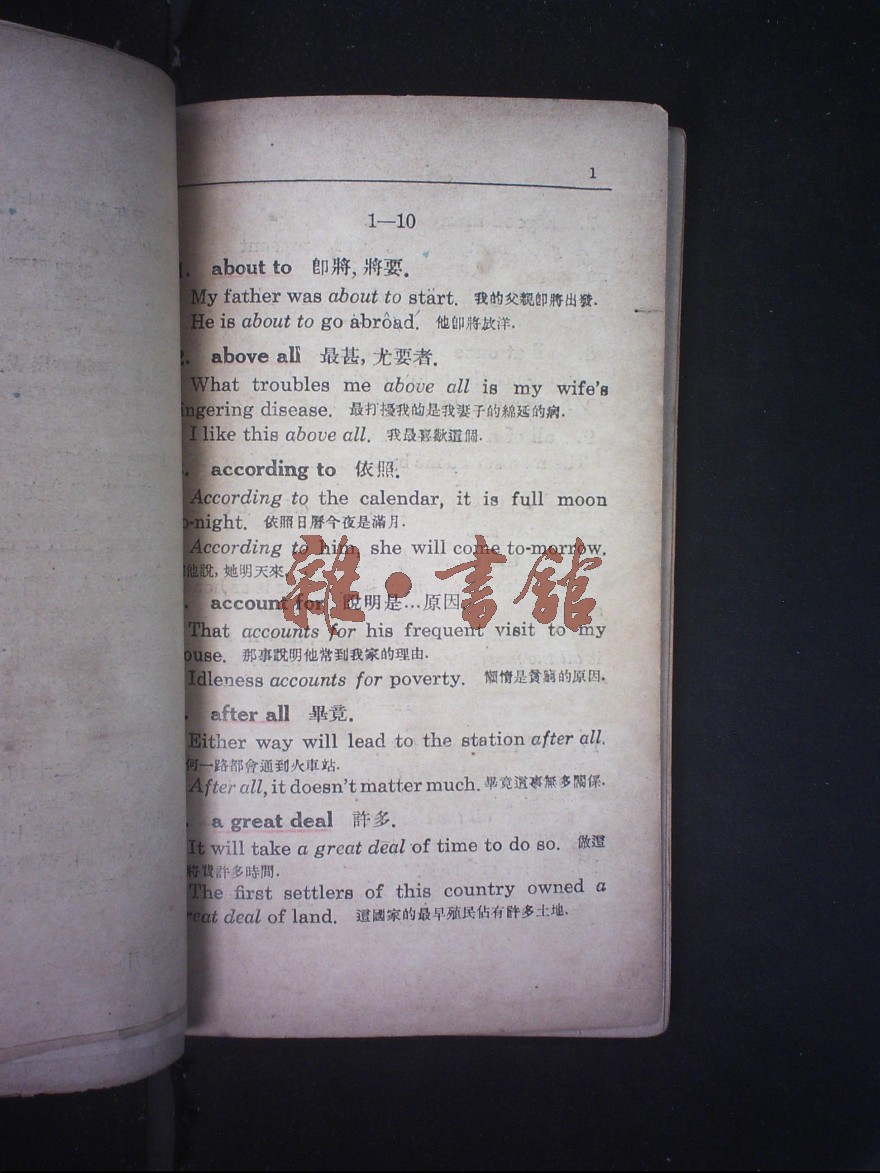 1
1—10
about to 即將, 將要.
My father was about to start. 我的父親即將出發.
He is about to go abroad. 他即將放洋.
2. above all 最甚, 尤要者.
What troubles me above all is my wife's
ingering disease. 最打擾我的是我妻子的綿延的病.
I like this above all. 我最喜歡這個.
according to 依照.
According to the calendar, it is full moon
o-night. 依照日曆今夜是滿月.
According to him, she will come to-morrow.
他說, 她明天來
account for 說明是…原因
That accounts for his frequent visit to my
ouse. 那事說明他常到我家的理由.
Idleness accounts for poverty. 懶惰是貧窮的原因.
after all 畢竟.
Either way will lead to the station after all.
何一路都會通到火車站.
After all, it doesn't matter much. 畢竟這事無多關係.
a great deal 許多.
It will take a great deal of time to do so. 做這
將費許多時間.
The first settlers of this country owned a
reat deal of land. 這國家的最早殖民佔有許多土地.
雜·書館